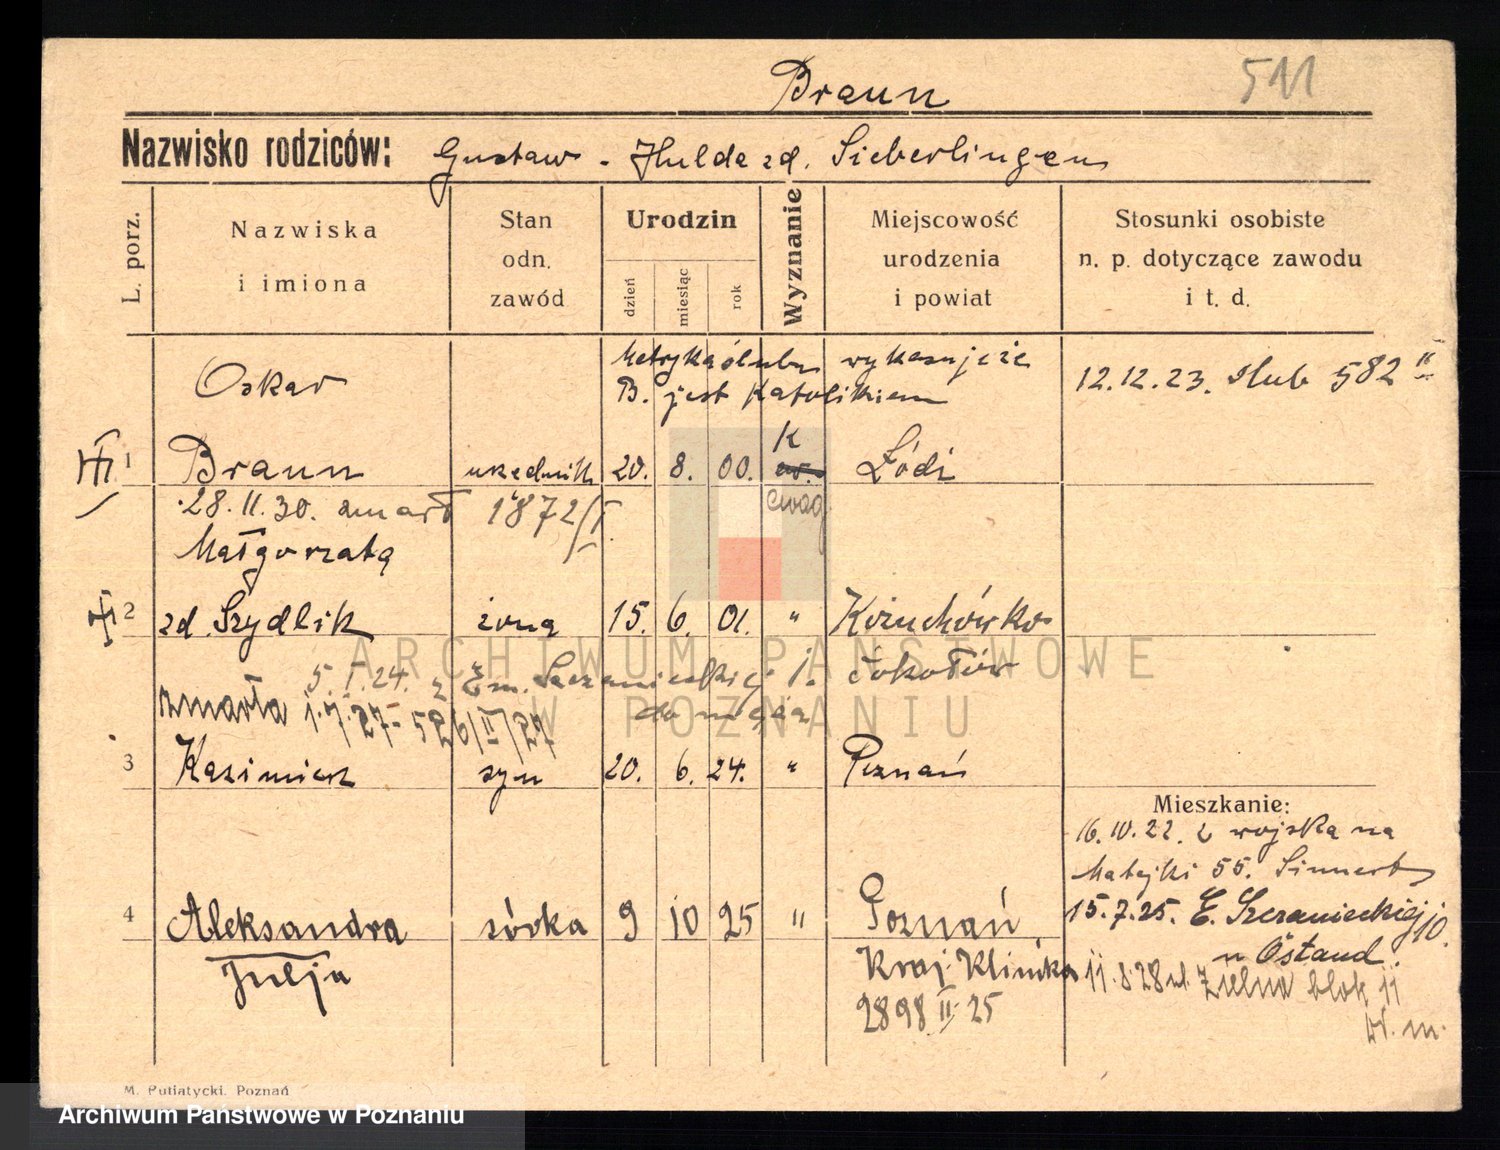 Braun 511
Nazwisko rodziców: Gustaw - Hulda zd. Sieberlingen
L. porz.
Nazwiska i imiona
Stan odn. zawód
Urodzin
dzień miesiąc rok
Wyznanie
Miejscowość urodzenia i powiat
Stosunki osobiste n. p. dotyczące zawodu i t. d.
Oskar Metryka ślubu wykazuje że 12.12.23. slub 582 II
B. jest Katolikiem
K
1 Braun urzędnik 20. 8. 00. ew. Łódź
28.II.30. zmarł 1872/I ewag
Małgorzata
2 zd. Szydlik żona 15. 6. 01. " Kożuchówko
5.I.24. z Em. Szczanieckiej 1. Sokołów
zmarła 1.7.27 - 526/II/27 do męża
3 Kazimierz syn 20. 6. 24. " Poznań
Mieszkanie:
16.10.22. z wojska na
Matejki 55. Sinnert
4 Aleksandra córka 9 10 25 " Poznań 15.7.25. E. Szczanieckiej 10.
Julja u Ostand.
Kraj. Klinika 11.8.28 ul. Zielna blok 11
2898 II. 25 W. m.
M. Putiatycki. Poznań
ARCHIWUM PAŃSTWOWE
W POZNANIU
Archiwum Państwowe w Poznaniu